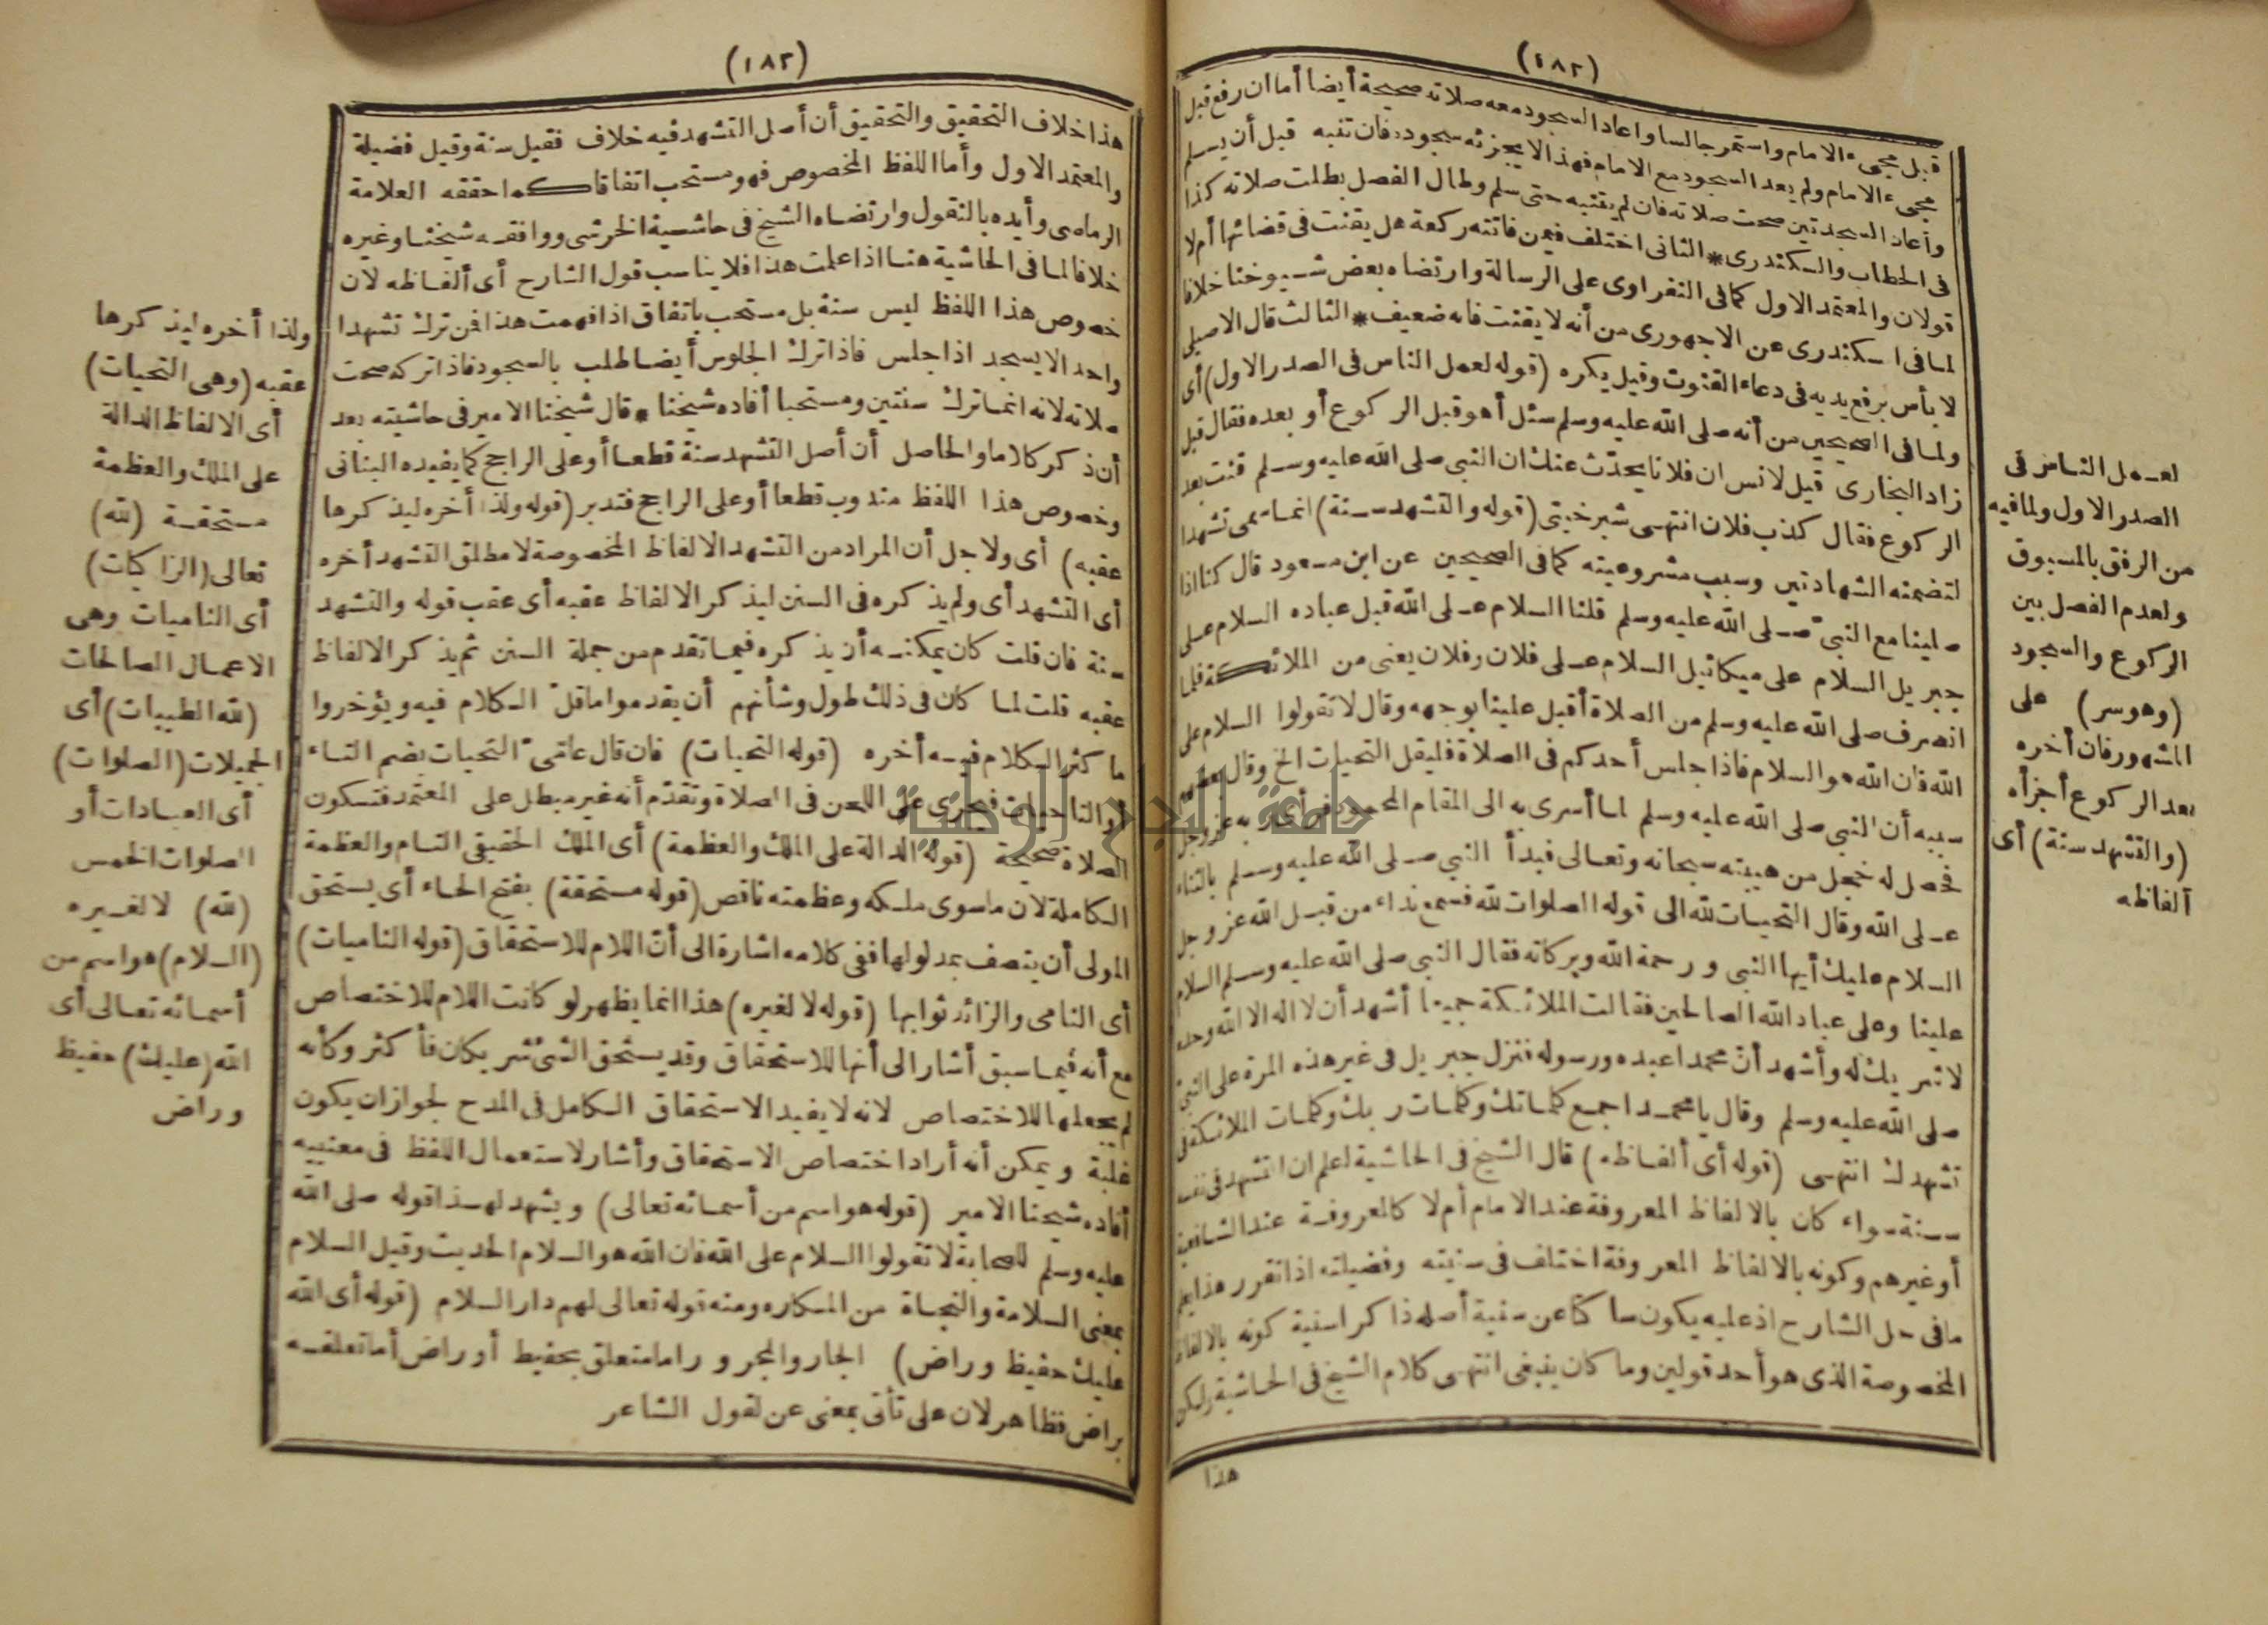 (١٨٢)
قبل مجىء الامام واستمر جالسا واعاد السجود معه صلاته صحيحة أيضا أما ان رفع قبل
مجىء الامام ولم يعد السجود مع الامام فهذا لا يجزئه سجوده فان تنبه قبل أن يسلم
وأعاد السجدتين صحت صلاته فان لم يتنبه حتى سلم وطال الفصل بطلت صلاته كذا
فى الحطاب والسكندرى * الثانى اختلف فيمن فاتته ركعة هل يقنت فى قضائها أم لا
قولان والمعتمد الاول كما فى النفراوى على الرسالة وارتضاه بعض شيوخنا خلافا
لما فى اسكندرى عن الاجهورى من أنه لا يقنت فانه ضعيف * الثالث قال الاصيلى
لا بأس برفع يديه فى دعاء القنوت وقيل يكره (قوله لعمل الناس فى الصدر الاول) أى
ولما فى الصحيحين من أنه صلى الله عليه وسلم سئل أهو قبل الركوع أو بعده فقال قبل
زاد البخارى قيل لانس ان فلانا يحدّث عنك ان النبي صلى الله عليه وسلم قنت بعد
الركوع فقال كذب فلان انتهى شبرخيتى (قوله والتشهد سنة) انما سمى تشهدا
لتضمنه الشهادتين وسبب مشروعيته كما فى الصحيحين عن ابن مسعود قال كنا اذا
صلينا مع النبي صلى الله عليه وسلم قلنا السلام على الله قبل عباده السلام على
جبريل السلام على ميكائيل السلام على فلان وفلان يعنى من الملائكة فلما
انصرف صلى الله عليه وسلم من الصلاة أقبل علينا بوجهه وقال لا تقولوا السلام على
الله فان الله هو السلام فاذا جلس أحدكم فى الصلاة فليقل التحيات الخ وقال بعضهم
سببه أن النبي صلى الله عليه وسلم لما أسرى به الى المقام المحمود فرأى ربه عز وجل
فحصل له خجل من هيبته سبحانه وتعالى فبدأ النبي صلى الله عليه وسلم بالثناء
على الله وقال التحيات لله الى قوله الصلوات لله فسمع نداء من قبل الله عز وجل
السلام عليك أيها النبي ورحمة الله وبركاته فقال النبي صلى الله عليه وسلم السلام
علينا وعلى عباد الله الصالحين فقالت الملائكة جميعا أشهد أن لا اله الا الله وحده
لا شريك له وأشهد أنّ محمدا عبده ورسوله فنزل جبريل فى غير هذه المرة على النبيّ
صلى الله عليه وسلم وقال يا محمد اجمع كلماتك وكلمات ربك وكلمات الملائكة فى
تشهدك انتهى (قوله أى ألفاظه) قال الشيخ فى الحاشية اعلم ان التشهد فى نفسه
سنة سواء كان بالالفاظ المعروفة عند الامام أم لا كالمعروفة عند الشافعية
أو غيرهم وكونه بالالفاظ المعروفة اختلف فى سنيته وفضيلته اذا تقرر هذا يعلم
ما فى حل الشارح اذ عليه يكون ساكتا عن سنية أصله ذاكرا سنية كونه بالالفاظ
المخصوصة الذى هو أحد قولين وما كان ينبغى انتهى كلام الشيخ فى الحاشية ولكن
هذا
لعمل الناس فى
الصدر الاول ولما فيه
من الرفق بالمسبوق
ولعدم الفصل بين
الركوع والسجود
(وهو سر) على
المشهور فان أخره
بعد الركوع أجزأه
(والتشهد سنة) أى
ألفاظه
(١٨٣)
هذا خلاف التحقيق والتحقيق أن أصل التشهد فيه خلاف فقيل سنة وقيل فضيلة
والمعتمد الاول وأما اللفظ المخصوص فهو مستحب اتفاقا كما حققه العلامة
الرماصى وأيده بالنقول وارتضاه الشيخ فى حاشية الخرشى ووافقه شيخنا وغيره
خلافا لما فى الحاشية هنا اذا علمت هذا فلا يناسب قول الشارح أى ألفاظه لان
خصوص هذا اللفظ ليس سنة بل مستحب باتفاق اذا فهمت هذا فمن ترك تشهدا
واحدا لا يسجد اذا جلس فاذا ترك الجلوس أيضا طلب بالسجود فاذا تركه صحت
صلاته لانه انما ترك سنتين ومستحبا أفاده شيخنا * قال شيخنا الامير فى حاشيته بعد
أن ذكر كلاما والحاصل أن أصل التشهد سنة قطعا أو على الراجح كما يفيده البنانى
وخصوص هذا اللفظ مندوب قطعا أو على الراجح فتدبر (قوله ولذا أخره ليذكرها
عقبه) أى ولاجل أن المراد من التشهد الالفاظ المخصوصة لا مطلق التشهد أخره
أى التشهد أى ولم يذكره فى السنن ليذكر الالفاظ عقبه أى عقب قوله والتشهد
سنة فان قلت كان يمكنه أن يذكره فيما تقدم من جملة السنن ثم يذكر الالفاظ
عقبه قلت لما كان فى ذلك طول وشأنهم أن يقدموا ما قلّ الكلام فيه ويؤخروا
ما كثر الكلام فيه أخره (قوله التحيات) فان قال عامىّ التحيات بضم التاء
أو التاحيات فيجرى على اللحن فى الصلاة وتقدّم أنه غير مبطل على المعتمد فتسكون
الصلاة صحيحة (قوله الدالة على الملك والعظمة) أى الملك الحقيقى التام والعظمة
الكاملة لان ما سوى ملكه وعظمته ناقص (قوله مستحقة) بفتح الحاء أى يستحق
المولى أن يتصف بمدلولها ففى كلامه اشارة الى أنّ اللام للاستحقاق (قوله الناميات)
أى النامى والزائد ثوابها (قوله لا لغيره) هذا انما يظهر لو كانت اللام للاختصاص
مع أنه فيما سبق أشار الى أنها للاستحقاق وقد يستحق الشئ شريكان فأكثر وكأنه
لم يجعلها للاختصاص لانه لا يفيد الاستحقاق الكامل فى المدح لجواز ان يكون
غلبة ويمكن أنه أراد اختصاص الاستحقاق وأشار لاستعمال اللفظ فى معنييه
أفاده شيخنا الامير (قوله هو اسم من أسمائه تعالى) ويشهد لهذا قوله صلى الله
عليه وسلم للصحابة لا تقولوا السلام على الله فان الله هو السلام الحديث وقيل السلام
بمعنى السلامة والنجاة من المكاره ومنه قوله تعالى لهم دار السلام (قوله أى الله
عليك حفيظ وراض) الجار والمجرور اما متعلق بحفيظ أو راض أما تعلقه
براض فظاهر لان على تأتى بمعنى عن لقول الشاعر
ولذا أخره ليذكرها
عقبه (وهى التحيات)
أى الالفاظ الدالة
على الملك والعظمة
مستحقة (لله)
تعالى (الزاكيات)
أى الناميات وهى
الاعمال الصالحات
(لله الطيبات) أى
الجميلات (الصلوات)
أى العبادات أو
الصلوات الخمس
(لله) لا لغيره
(السلام) هو اسم من
أسمائه تعالى أى
الله (عليك) حفيظ
وراض
جامعة النجاح الوطنية